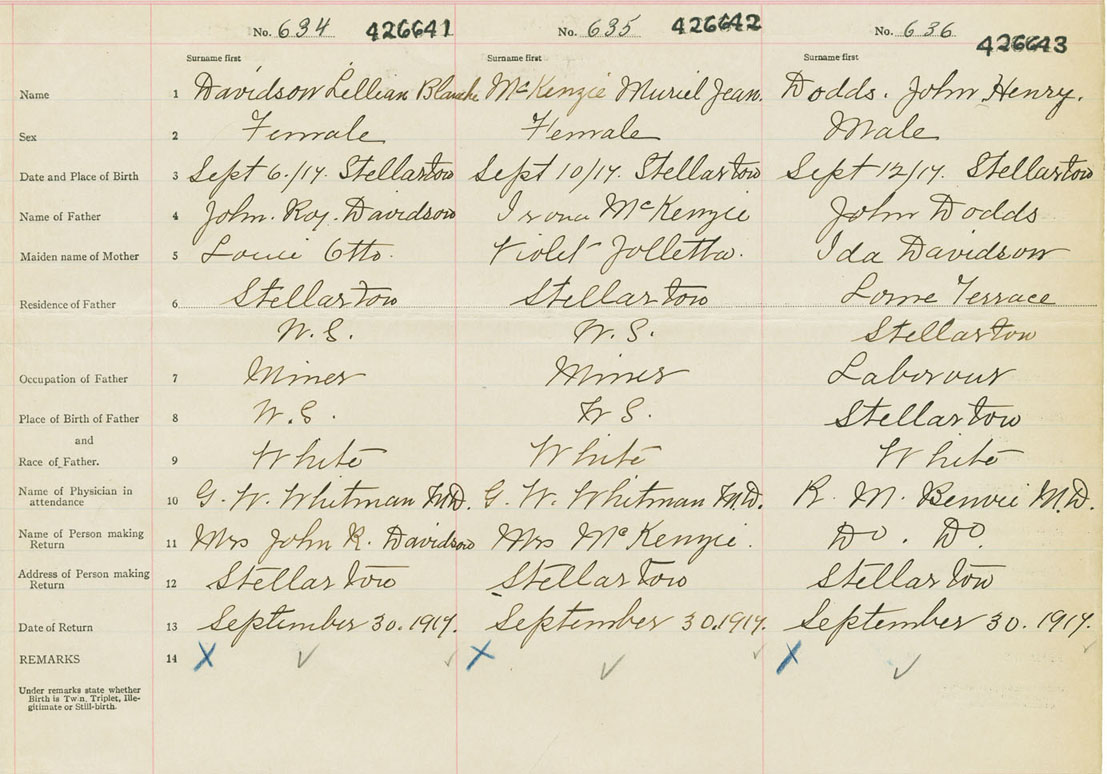 No. 634 426641 No. 635 426642 No. 636 426643
Surname first Surname first Surname first
Name 1 Davidson Lillian Blanche McKenzie Muriel Jean. Dodds. John Henry.
Sex 2 Female Female Male
Date and Place of Birth 3 Sept 6./17. Stellarton Sept 10/17. Stellarton Sept 12/17. Stellarton
Name of Father 4 John. Roy. Davidson McKenzie John Dodds
Maiden name of Mother 5 Louie Otto. Violet Jolletta. Ida Davidson
Residence of Father 6 Stellarton Stellarton Lorne Terrace
N.S. N.S. Stellarton
Occupation of Father 7 Miner Miner Laborour
Place of Birth of Father 8 N.S. N S. Stellarton
and
Race of Father. 9 White White White
Name of Physician in
attendance 10 G. W. Whitman M.D. G. W. Whitman M.D. R. M. Benvie M.D.
Name of Person making
Return 11 Mrs John R. Davidson Mrs McKenzie. Do. Do.
Address of Person making
Return 12 Stellarton Stellarton Stellarton
Date of Return 13 September 30. 1917. September 30. 1917. September 30. 1917.
REMARKS 14 X X X
Under remarks state whether
Birth is Twin, Triplet, Ille-
gitimate or Still-birth.